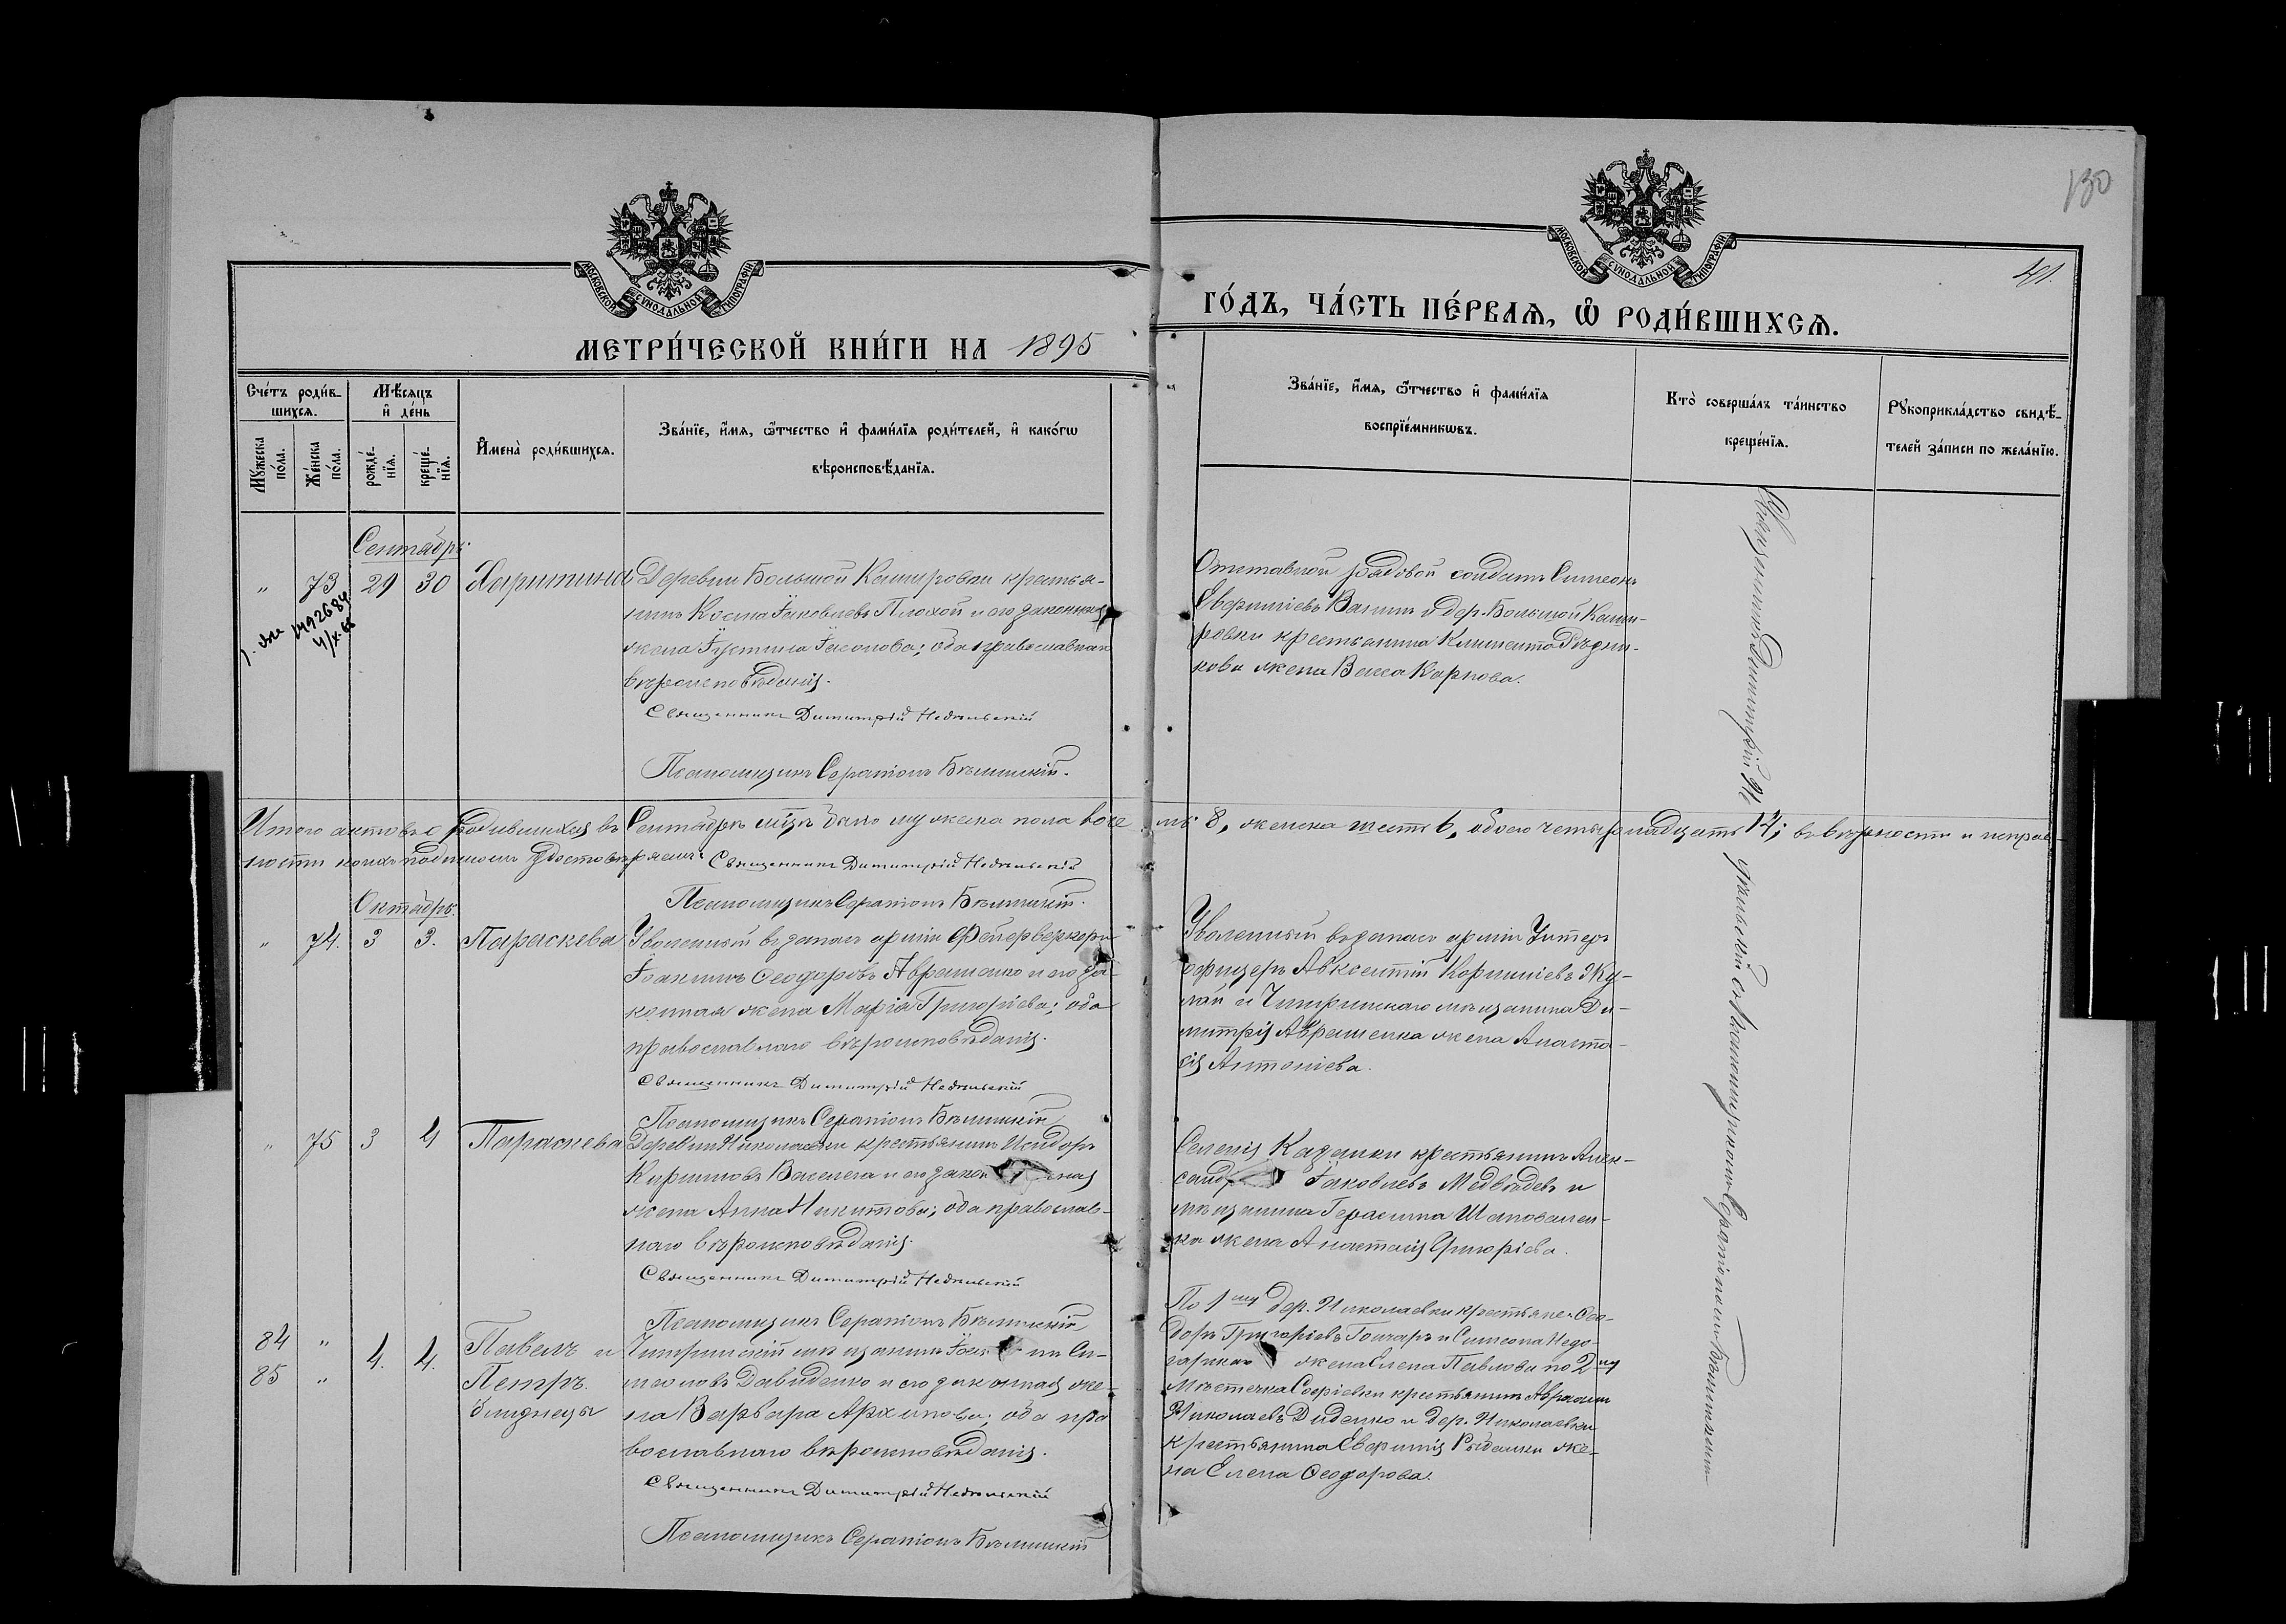 130
41.
МОСКОВСКОЙ СУНОДАЛЬНОЙ ТИПОГРАФІИ
МОСКОВСКОЙ СУНОДАЛЬНОЙ ТИПОГРАФІИ
МЕТРИ́ЧЕСКОЙ КНИ́ГИ НА 1895
ГО́ДЪ, ЧА́СТЬ ПЕ́РВАѦ, Ѡ҆ РОДИ́ВШИХСѦ.
Сче́тъ роди́в-
шихсѧ.
Мꙋ́жеска по́ла.
Же́нска по́ла.
Мѣ́сѧцъ
и҆ де́нь
рожде́-нїѧ.
креще́-нїѧ.
И҆мена̀ роди́вшихсѧ.
Зва́нїе, и҆́мѧ, ѻ҆́тчество и҆ фами́лїѧ роди́телей, и҆ како́гѡ
вѣроисповѣ́данїѧ.
Зва́нїе, и҆́мѧ, ѻ҆́тчество и҆ фами́лїѧ
воспрїе́мникѡвъ.
Кто̀ соверша́лъ та́инство
креще́нїѧ.
Рꙋкоприкла́дство свидѣ́-
телей за́писи по жела́нїю.
Сентябрь.
" 73 29 30 Харитина
Деревни Большой Кашировки крестья-
нинъ Косма Іаковлевъ Плохой и его законная
жена Іустина Іасонова; оба православнаго
вѣроисповѣданія.
Священникъ Димитрій Недѣльскій
Псаломщикъ Серапіонъ Бѣлинскій.
Отставной рядовой солдатъ Симеонъ
Евфиміевъ и дер. Большой Каши-
ровки крестьянина Климента
жена Васса Карпова.
Итого актовъ о родившихся въ Сентябрѣ м-цѣ было мужеска пола восемь 8, женска шесть 6, обоего четырнадцать 14; въ вѣрности и исправ-
ности коихъ подписомъ удостовѣряемъ: Священникъ Димитрій Недѣльскій
Псаломщикъ Серапіонъ Бѣлинскій.
Октябрь.
" 74. 3 3. Параскева
Уволенный въ запасъ арміи Фейерверкеръ
Іоакимъ Ѳеодоровъ Авраменко и его за-
конная жена Марія Григоріева; оба
православнаго вѣроисповѣданія.
Священникъ Димитрій Недѣльскій
Псаломщикъ Серапіонъ Бѣлинскій
Уволенный въ запасъ арміи Унтеръ
офицеръ Авксентій Корниліевъ Жу-
лай и Чигиринскаго мѣщанина Ди-
митрія Авраменка жена Анаста-
сія Антоніева.
" 75 3 4 Параскева
Деревни Николаевки крестьянинъ Исидоръ
Кириловъ и его законная
жена Анна Никитова; оба православ-
наго вѣроисповѣданія.
Священникъ Димитрій Недѣльскій
Псаломщикъ Серапіонъ Бѣлинскій
Селенія Казанки крестьянинъ Алек-
санд Іаковлевъ Медвѣдевъ и
мѣщанина Герасима Шаповален-
ка жена Анастасія Григоріева.
84 " 4. 4. Павелъ и
85 " Петръ.
близнецы
Чигиринскій мѣщанинъ Си-
меоновъ Давиденко и его законная же-
на Варвара Архипова; оба пра
вославнаго вѣроисповѣданія.
Священникъ Димитрій Недѣльскій
Псаломщикъ Серапіонъ Бѣлинскій
По 1му дер. Николаевки крестьяне Ѳео-
доръ Григоріевъ Гончаръ и Симеона
жена Елена Павлова по 2му
Мѣстечка Софіевки крестьянинъ Авраамъ
Николаевъ Диденко и дер. Николаевки
крестьянина Евфимія же-
на Елена Ѳеодорова.
Священникъ Димитрій Недѣльскій съ псаломщикомъ Серапіономъ Бѣлинскимъ